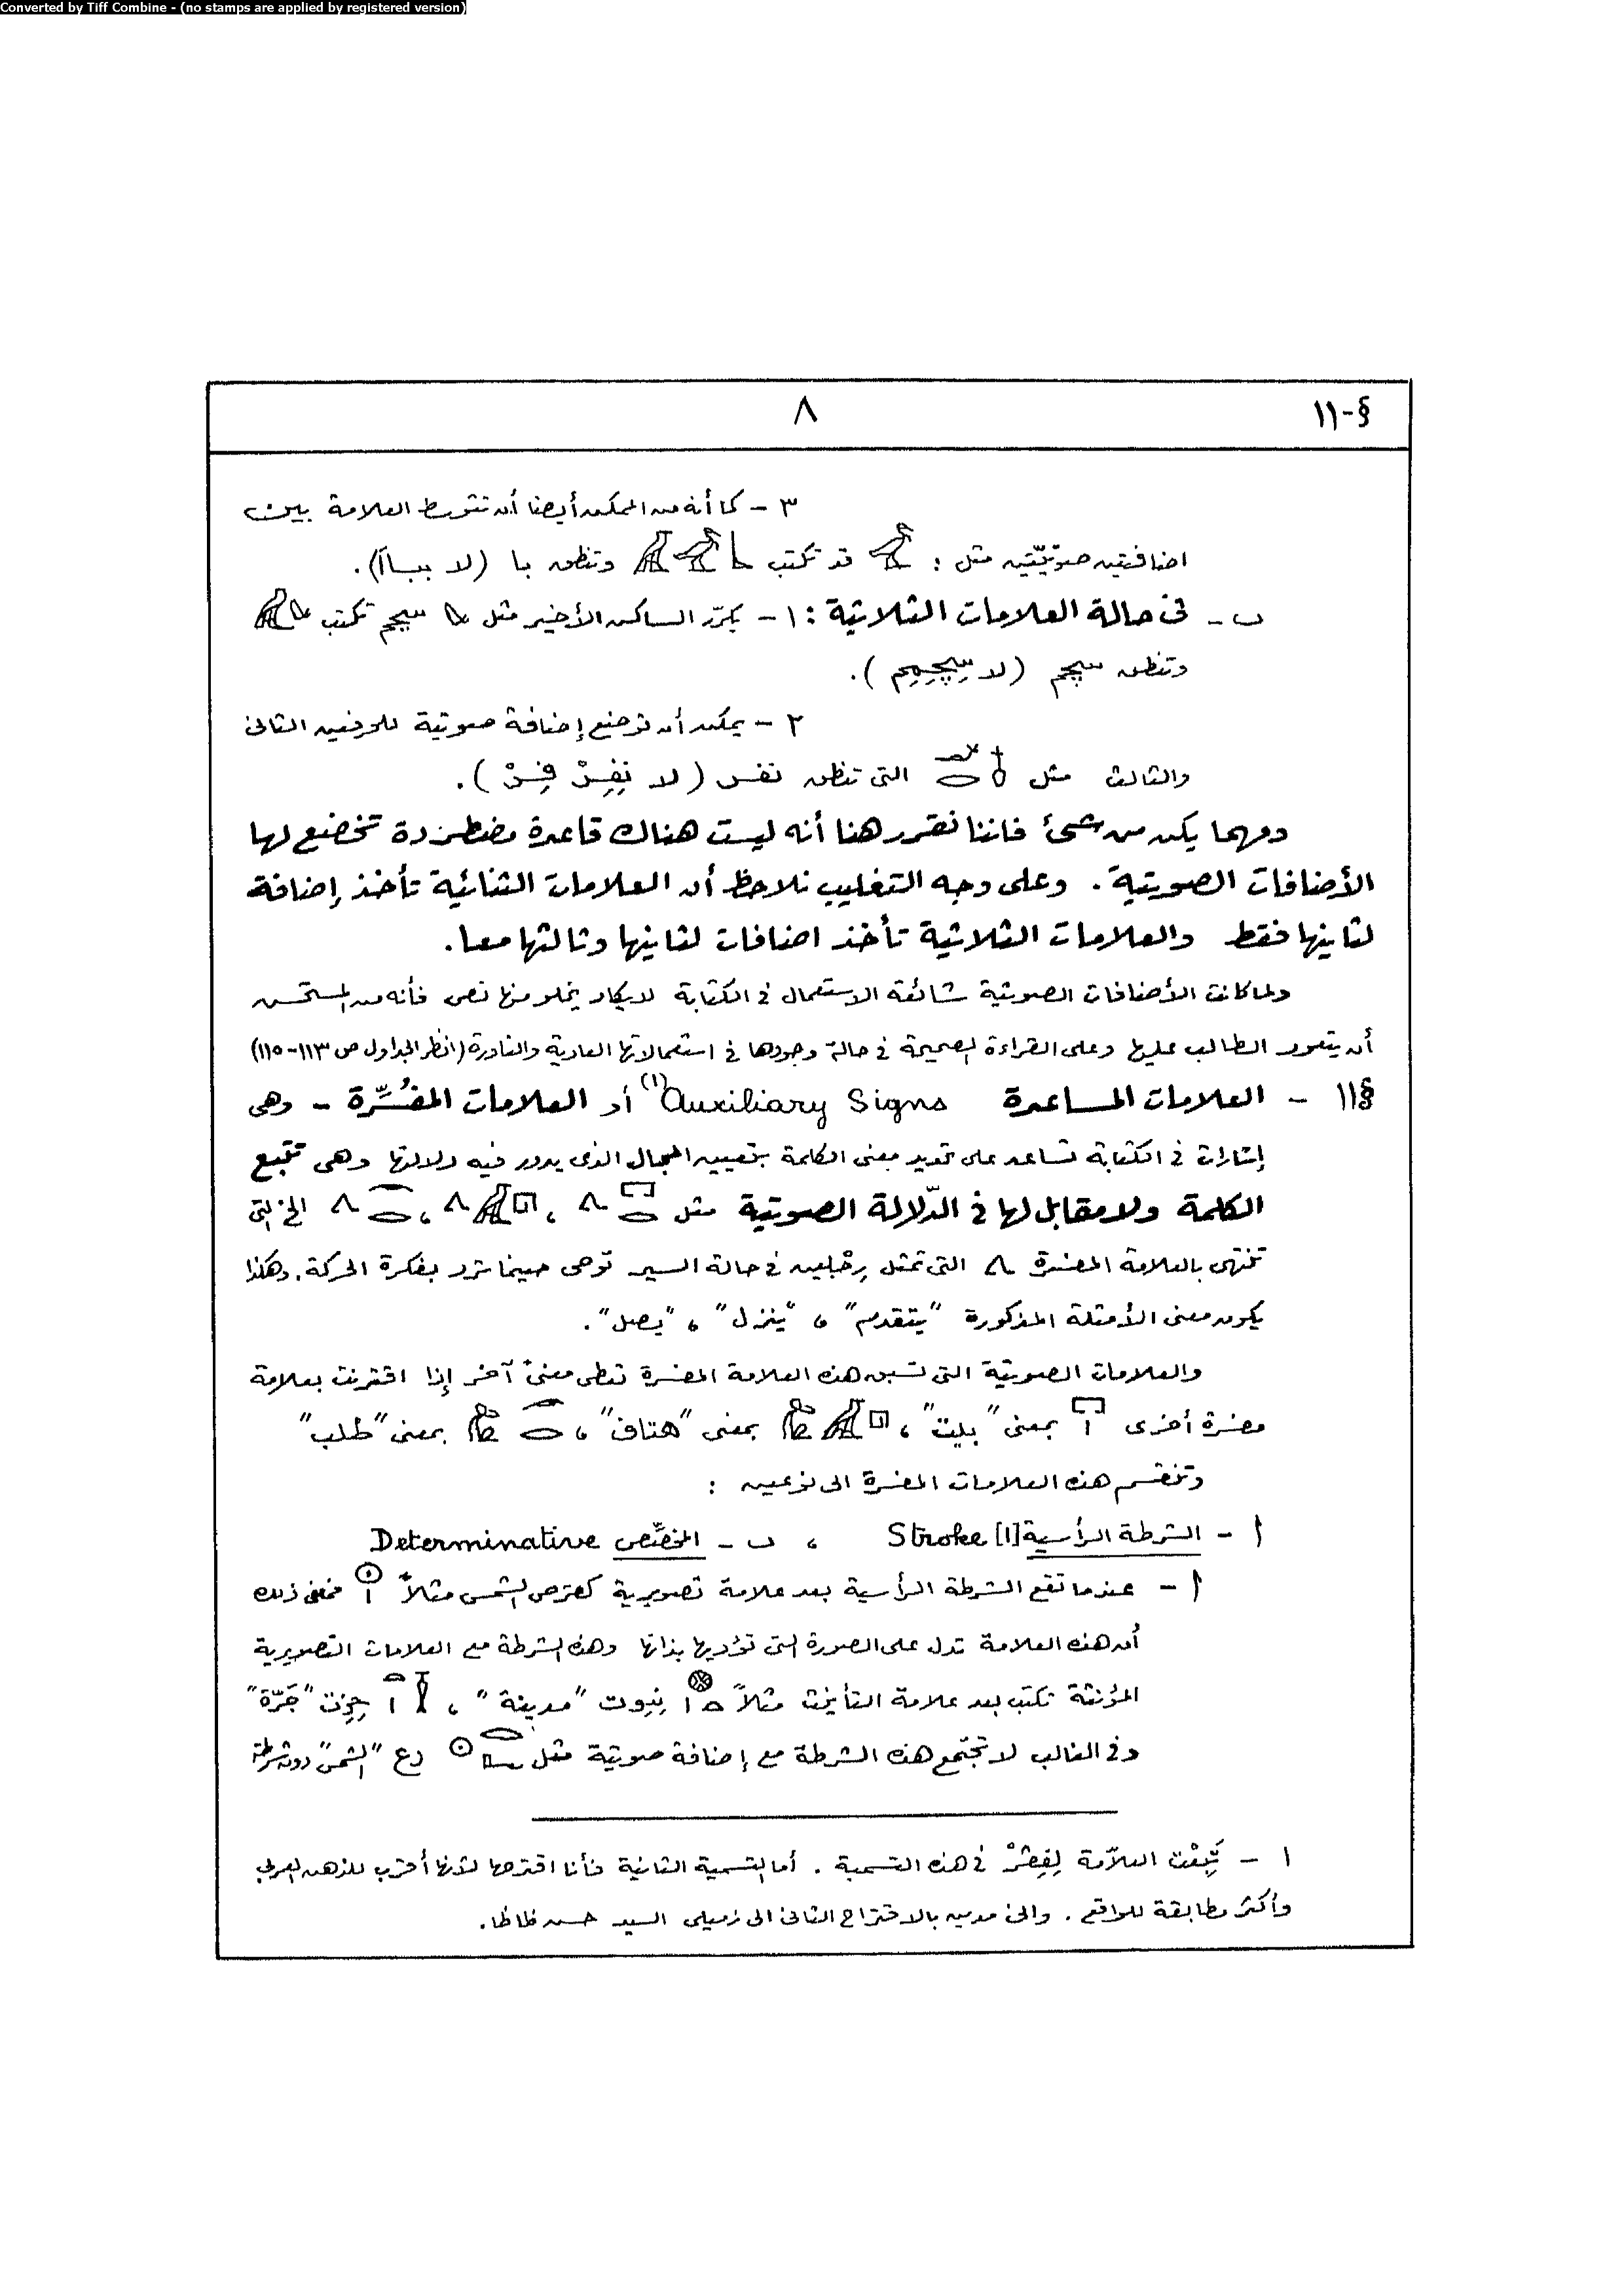 Converted by Tiff Combine - (no stamps are applied by registered version)
§-١١
٨
٣ - كما أنه من الممكن أيضا أن تتوسط العلامة بين
اضافتين صوتيتين مثل : قد تكتب وتنطق با (لا ببـاأ).
ب - فى حالة العلامات الثلاثية : ١ - يكرّر الساكن الأخير مثل سچم تكتب
وتنطق سچم (لا سِچِمِم ).
٢ - يمكن أن توضع إضافة صوتية للحرفين الثانى
والثالث مثل التى تنطق نفر ( لا نِفِرْ فِرْ ).
ومهما يكن من شئ فاننا نقرر هنا أنه ليست هناك قاعدة مضطردة تخضع لها
الأضافات الصوتية . وعلى وجه التغليب نلاحظ أن العلامات الثنائية تأخذ إضافة
لثانيها فقط والعلامات الثلاثية تأخذ اضافات لثانيها وثالثها معا .
ولما كانت الأضافات الصوتية شائعة الاستعمال فى الكتابة لا يكاد يخلو منها نص فأنه من المستحسن
أن يتعود الطالب عليها وعلى القراءة الصحيحة فى حالة وجودها فى استعمالاتها العادية والنادرة (انظر الجداول ص ١١٣-١١٥)
§١١ - العلامات المساعدة Auxiliary Signs (١) أو العلامات المفسِّرة - وهى
إشارات فى الكتابة تساعد على تحديد معنى الكلمة بتعيين المجال الذى يدور فيه دلالتها وهى تتبع
الكلمة ولا مقابل لها فى الدّلالة الصوتية مثل ، ، الخ التى
تنتهى بالعلامة المفسرة التى تمثل رِجْلين فى حالة السير توحى حينما ترد بفكرة الحركة . وهكذا
يكون معنى الأمثلة المذكورة "يتقدم" ، "ينزل" ، "يصل" .
والعلامات الصوتية التى تسبق هذه العلامة المفسرة تعطى معنىً آخر إذا اقترنت بعلامة
مفسرة أخرى بمعنى "بيت" ، بمعنى "هتاف" ، بمعنى "طلب"
وتنقسم هذه العلامات المفسرة الى نوعين :
أ - الشرطة الرأسية [١] Stroke ، ب - المخصِّص Determinative
أ - عندما تقع الشرطة الرأسية بعد علامة تصويرية كقرص الشمس مثلاً فمعنى ذلك
أن هذه العلامة تدل على الصورة التى تؤديها بذاتها وهذه الشرطة مع العلامات التصويرية
المؤنثة تكتب بعد علامة التأنيث مثلاً نِيوت "مدينة" ، حِزت "جَرّة"
وفى الغالب لا تجتمع هذه الشرطة مع إضافة صوتية مثل رع "الشمس" دون شرطة
١ - تَبِعْت العلاّمة لِفِقْرْ فى هذه التسمية . أما التسمية الثانية فأنا اقترحها لأنها أقرب للذهن العربى
وأكثر مطابقة للواقع . وانى مدين بالاقتراح الثانى الى زميلى السيد حسن ظاظا .